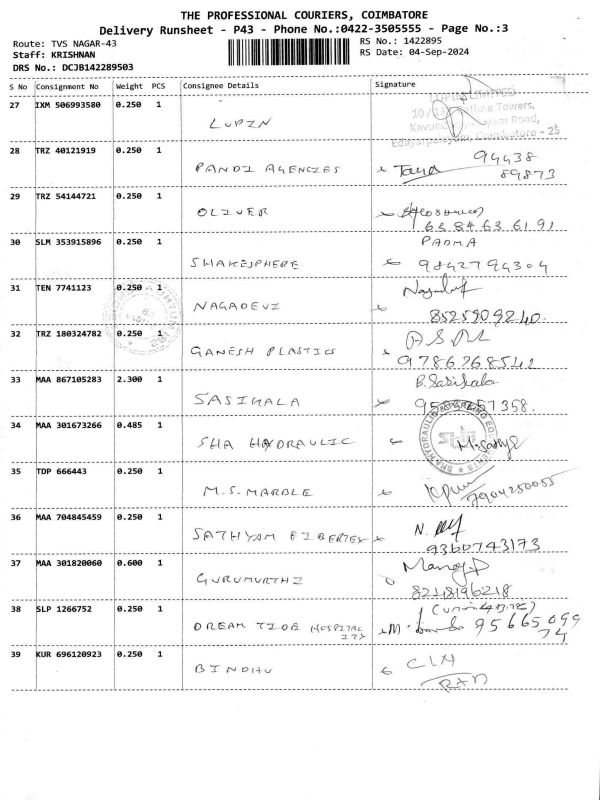 THE PROFESSIONAL COURIERS, COIMBATORE
Delivery Runsheet - P43 - Phone No.:0422-3505555 - Page No.:3
Route: TVS NAGAR-43 RS No.: 1422895
Staff: KRISHNAN RS Date: 04-Sep-2024
DRS No.: DCJB142289503
S No Consignment No Weight PCS Consignee Details Signature
27 IXM 506993580 0.250 1
LUPIN
28 TRZ 40121919 0.250 1 94438
PANDI AGENCIES 89873
29 TRZ 54144721 0.250 1
OLIVER 63 84 63 61 91
30 SLM 353915896 0.250 1 PADMA
SHAKESPHERE 9842794304
31 TEN 7741123 0.250 1
NAGADEVI 8525909240.
32 TRZ 180324782 0.250 1
GANESH PLASTICS 9786768542
33 MAA 867105283 2.300 1 B. Sasikala
SASIKALA
34 MAA 301673266 0.485 1
SHA HYDRAULIC
35 TDP 666443 0.250 1
M.S. MARBLE 7904250055
36 MAA 704845459 0.250 1
SATHYAM FIBERTEX 9360743173
37 MAA 301820060 0.600 1
GURUMURTHI 8218196218
38 SLP 1266752 0.250 1
DREAM TIOB HOSPITAL 95665099
ITY 74
39 KUR 696120923 0.250 1
BINDHU